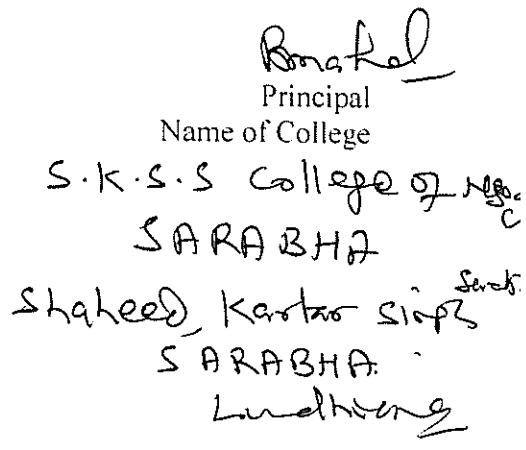 Principal
Name of College
S.K.S.S College of
SARABHA
Shaheed Kartar Singh
SARABHA.
Ludhiana